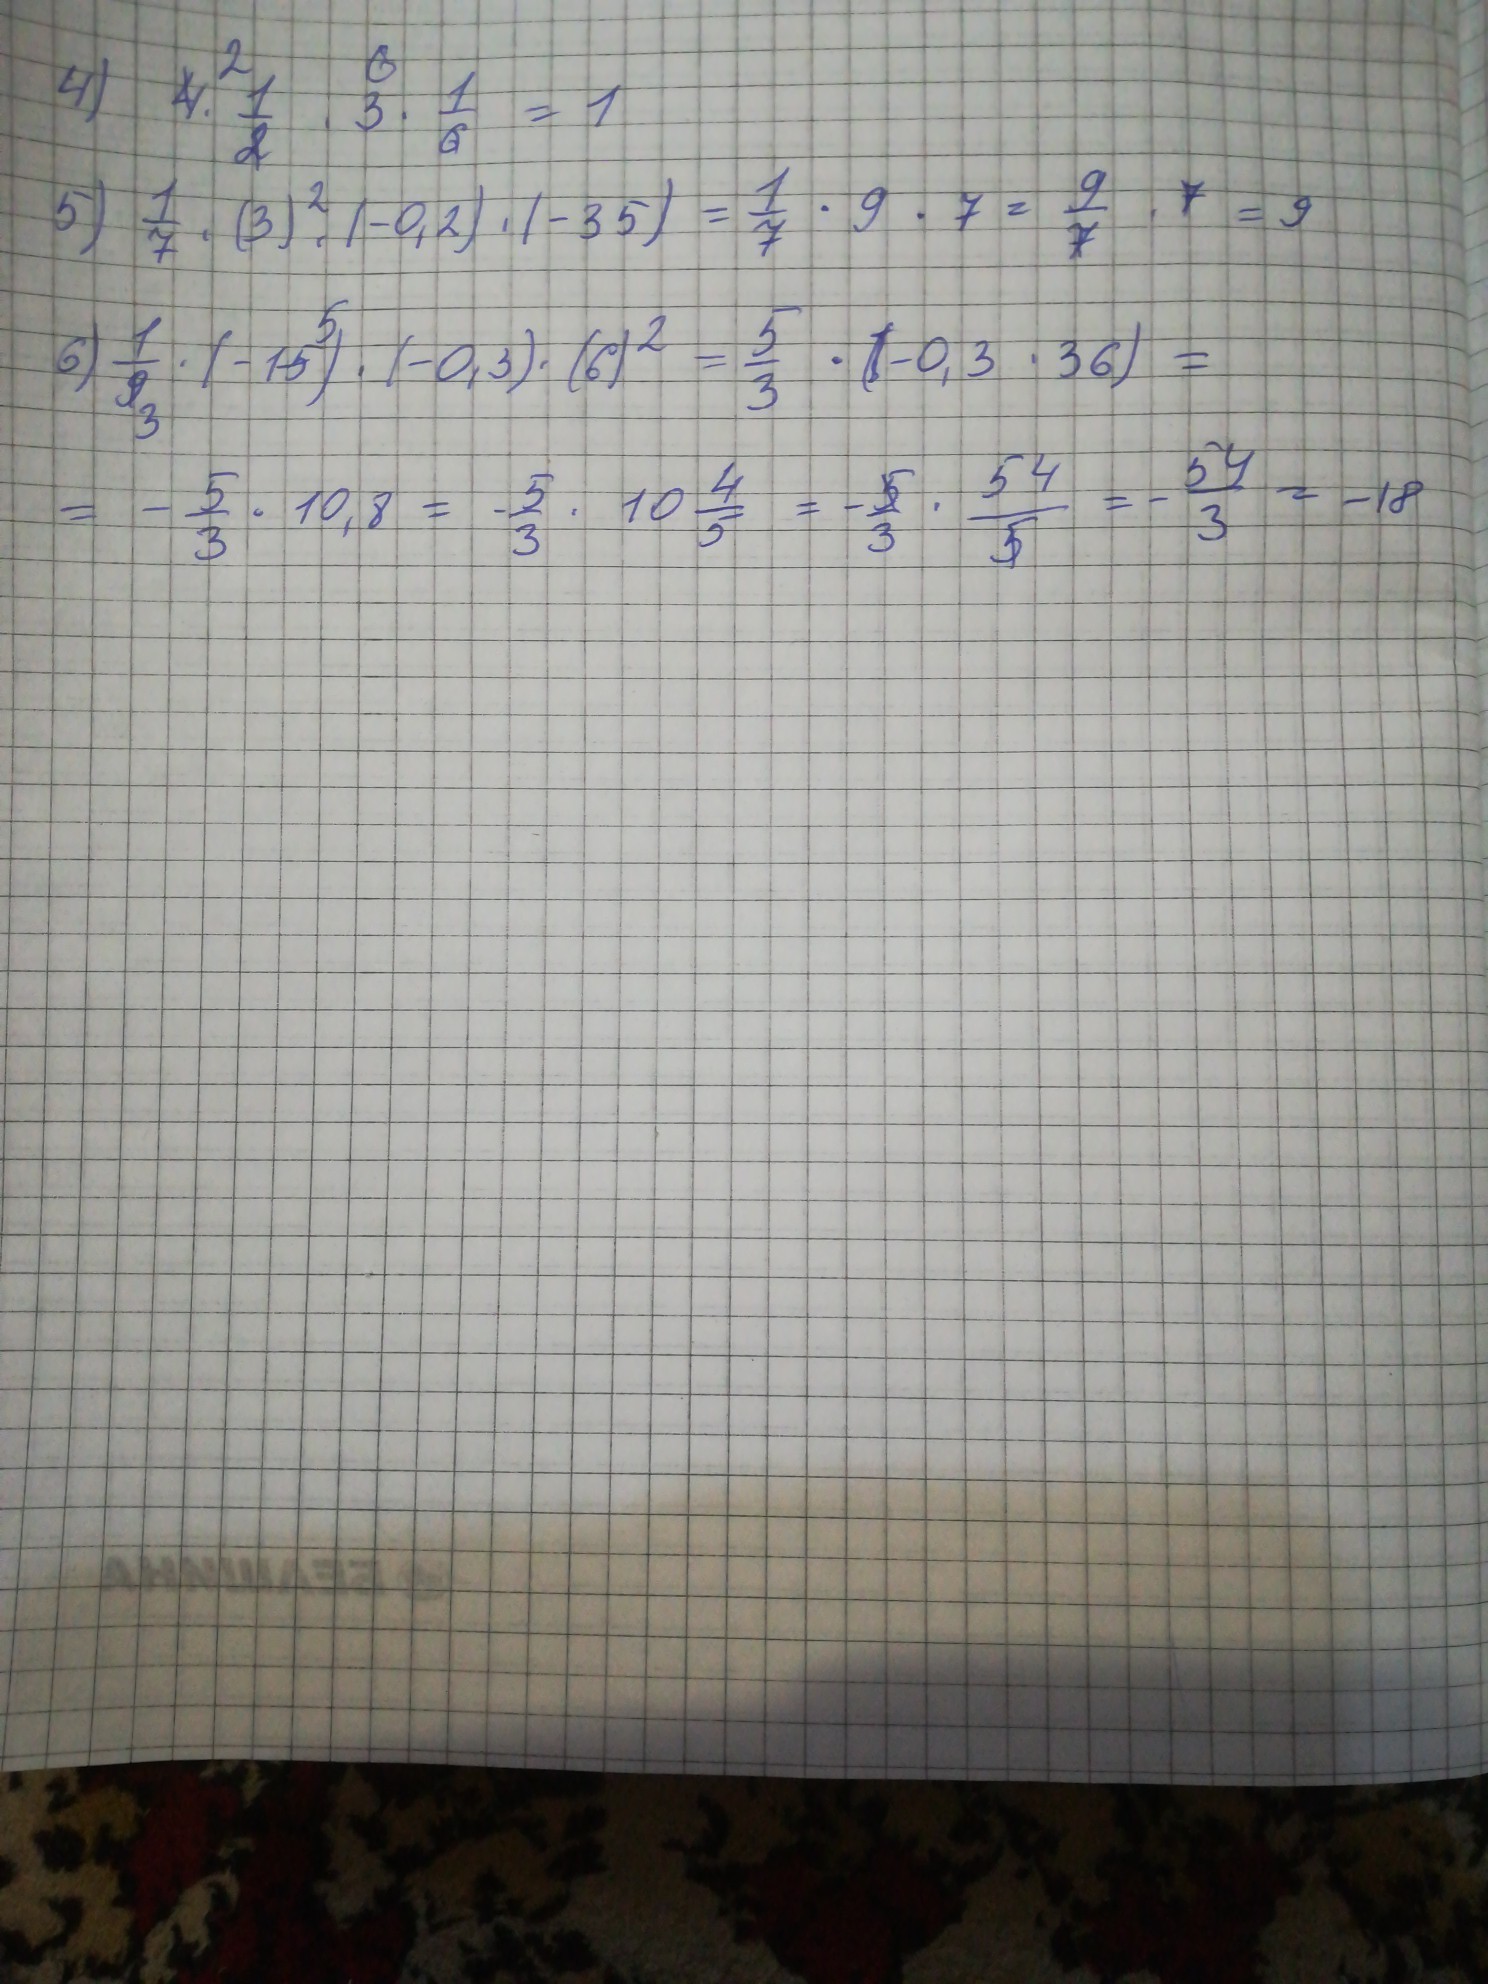 4) 4² · 1/2 · 3⁶ · 1/6 = 1
5) 1/7 · (3)² · (-0,2) · (-35) = 1/7 · 9 · 7 = 9/7 · 7 = 9
6) 1/9 3 · (-15⁵) · (-0,3) · (6)² = 5/3 · (-0,3 · 36) =
= - 5/3 · 10,8 = - 5/3 · 10 4/5 = - 5/3 · 54/5 = - 54/3 = -18
БЕЛШИНА